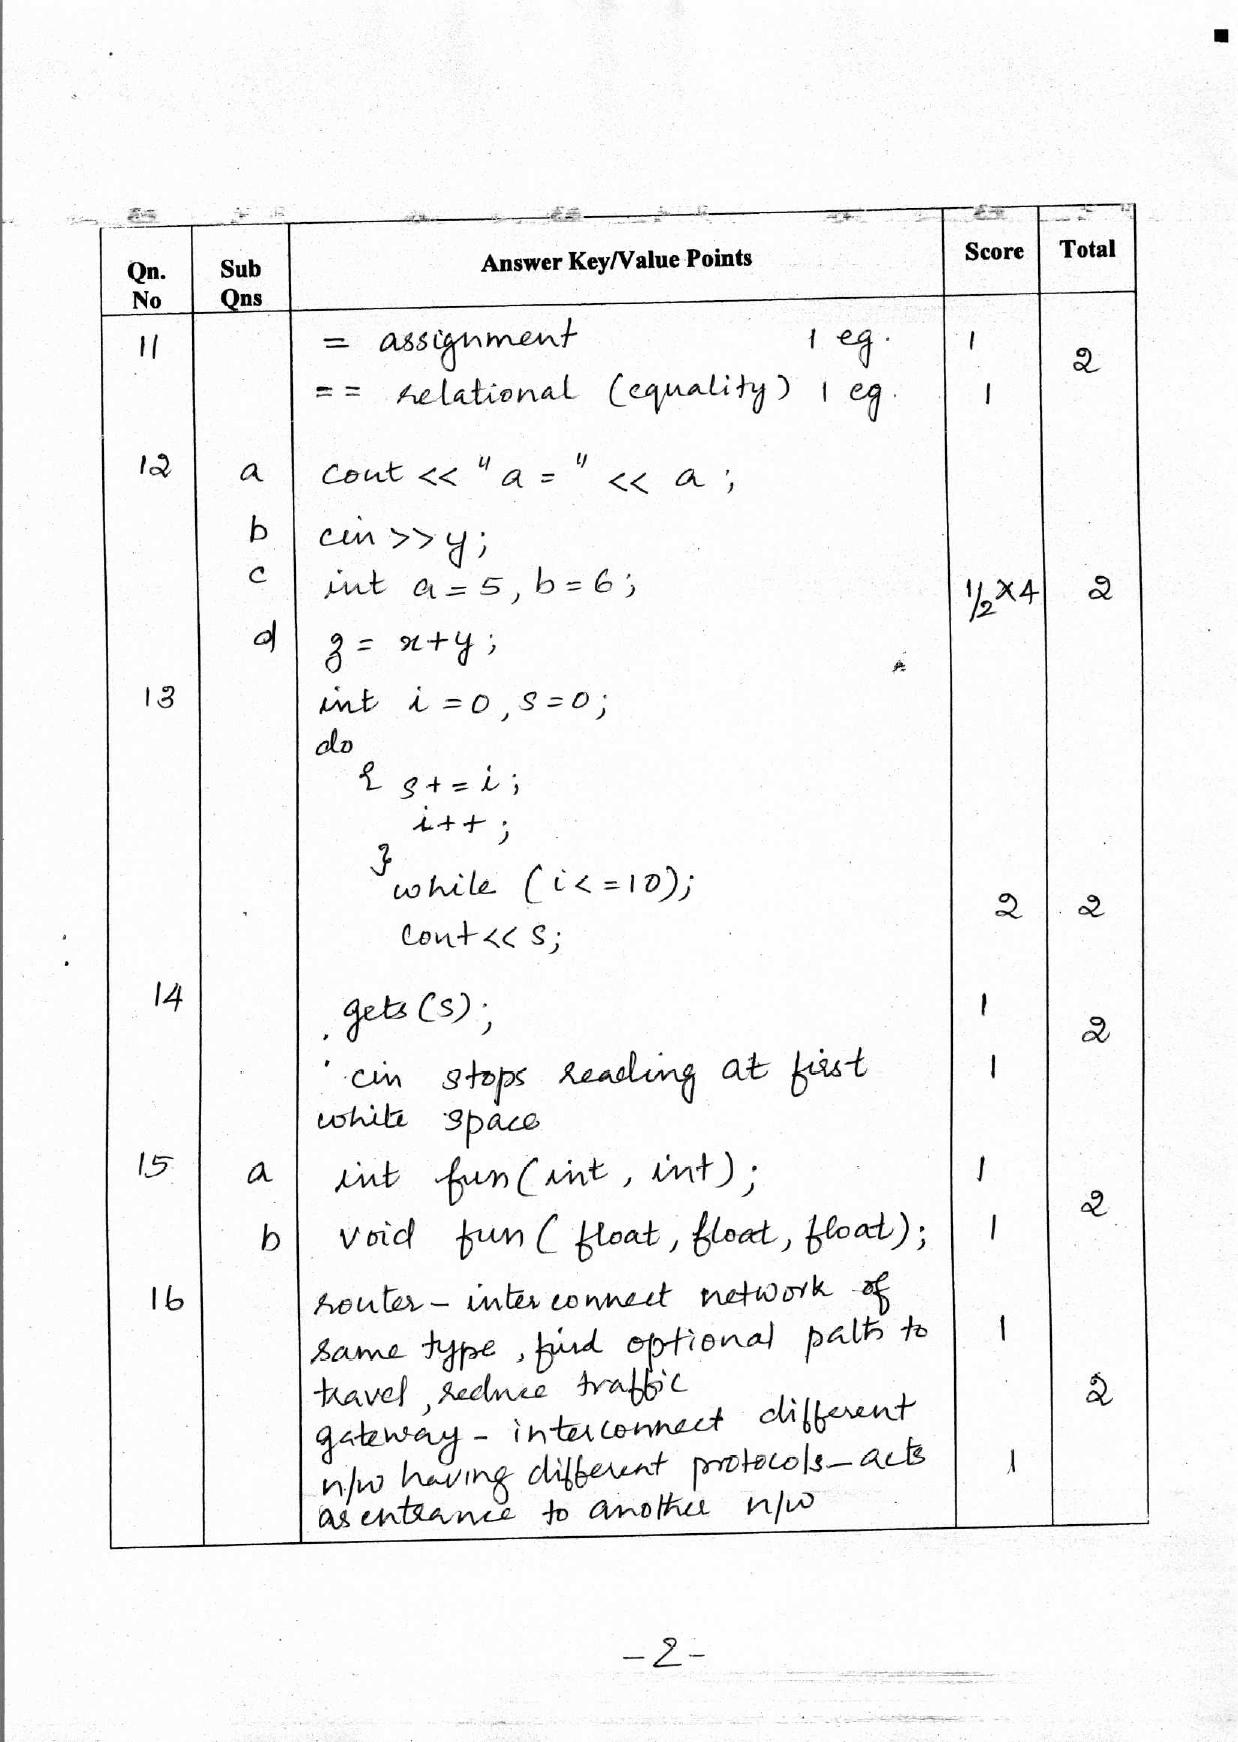 Qn. No Sub Qns Answer Key/Value Points Score Total
11 = assignment 1 eg. 1 2
== relational (equality) 1 eg. 1
12 a cout << "a = " << a ;
b cin >> y;
c int a = 5, b = 6 ; 1/2 x 4 2
d z = x+y ;
13 int i = 0, s = 0;
do
{ s + = i ;
i + + ;
}
while (i < = 10);
2 2
cout << s;
14 gets (s) ; 1
2
cin stops reading at first 1
white space
15 a int fun (int, int) ; 1
2
b void fun ( float, float, float); 1
16 router - inter connect network of
same type, find optional path to 1
travel, reduce traffic
2
gateway - interconnect different
n/w having different protocols - acts 1
as entrance to another n/w
-2-